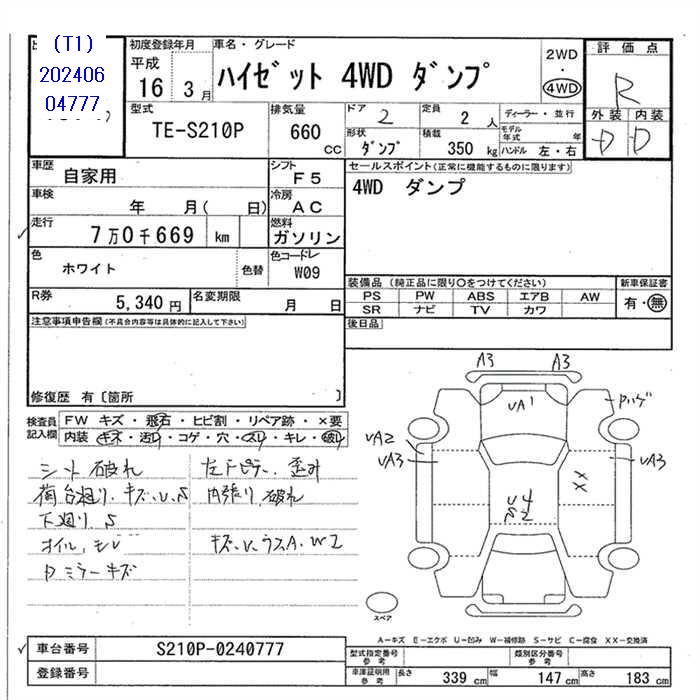 (T1)
202406
04777
初度登録年月
平成
16 3月
車名・グレード
ハイゼット 4WD ダンプ
2WD
・
4WD
評価点
R
外装 内装
D D
型式
TE-S210P
排気量
660
CC
ドア 2
定員 2 人
ディーラー・並行
形状
ダンプ
積載
350 kg
モデル年式 年
ハンドル 左・右
車歴
自家用
シフト
F5
車検
年 月( 日)
冷房
AC
走行
7万0千669 km
燃料
ガソリン
色
ホワイト
色替
色コードレ
W09
R券
5,340 円
名変期限
月 日
セールスポイント(正常に機能するものに限ります)
4WD ダンプ
装備品(純正品に限り○をつけてください)
新車保証書
PS PW ABS エアB AW
SR ナビ TV カワ
有・無
後日品
注意事項申告欄(不具合内容等は具体的に記入して下さい)
修復歴 有〔箇所 〕
検査員
記入欄
FW キズ・飛石・ヒビ割・リペア跡・×要
内装・キズ・汚れ・コゲ・穴・スレ・キレ・破れ
シート破れ
荷台廻り、キズ、U、S
下廻り S
オイル、モレ
Dミラーキズ
左Fピラー歪み
内張り破れ
A3 A3
UA1
UA2
UA3
UA3
XX
U4
S2
スペア
A-キズ E-エクボ U-凹み W-補修跡 S-サビ C-腐食 XX-交換済
車台番号
S210P-0240777
登録番号
型式指定番号
参考
類別区分番号
参考
車庫証明用
参考
長さ 339 cm 幅 147 cm 高さ 183 cm